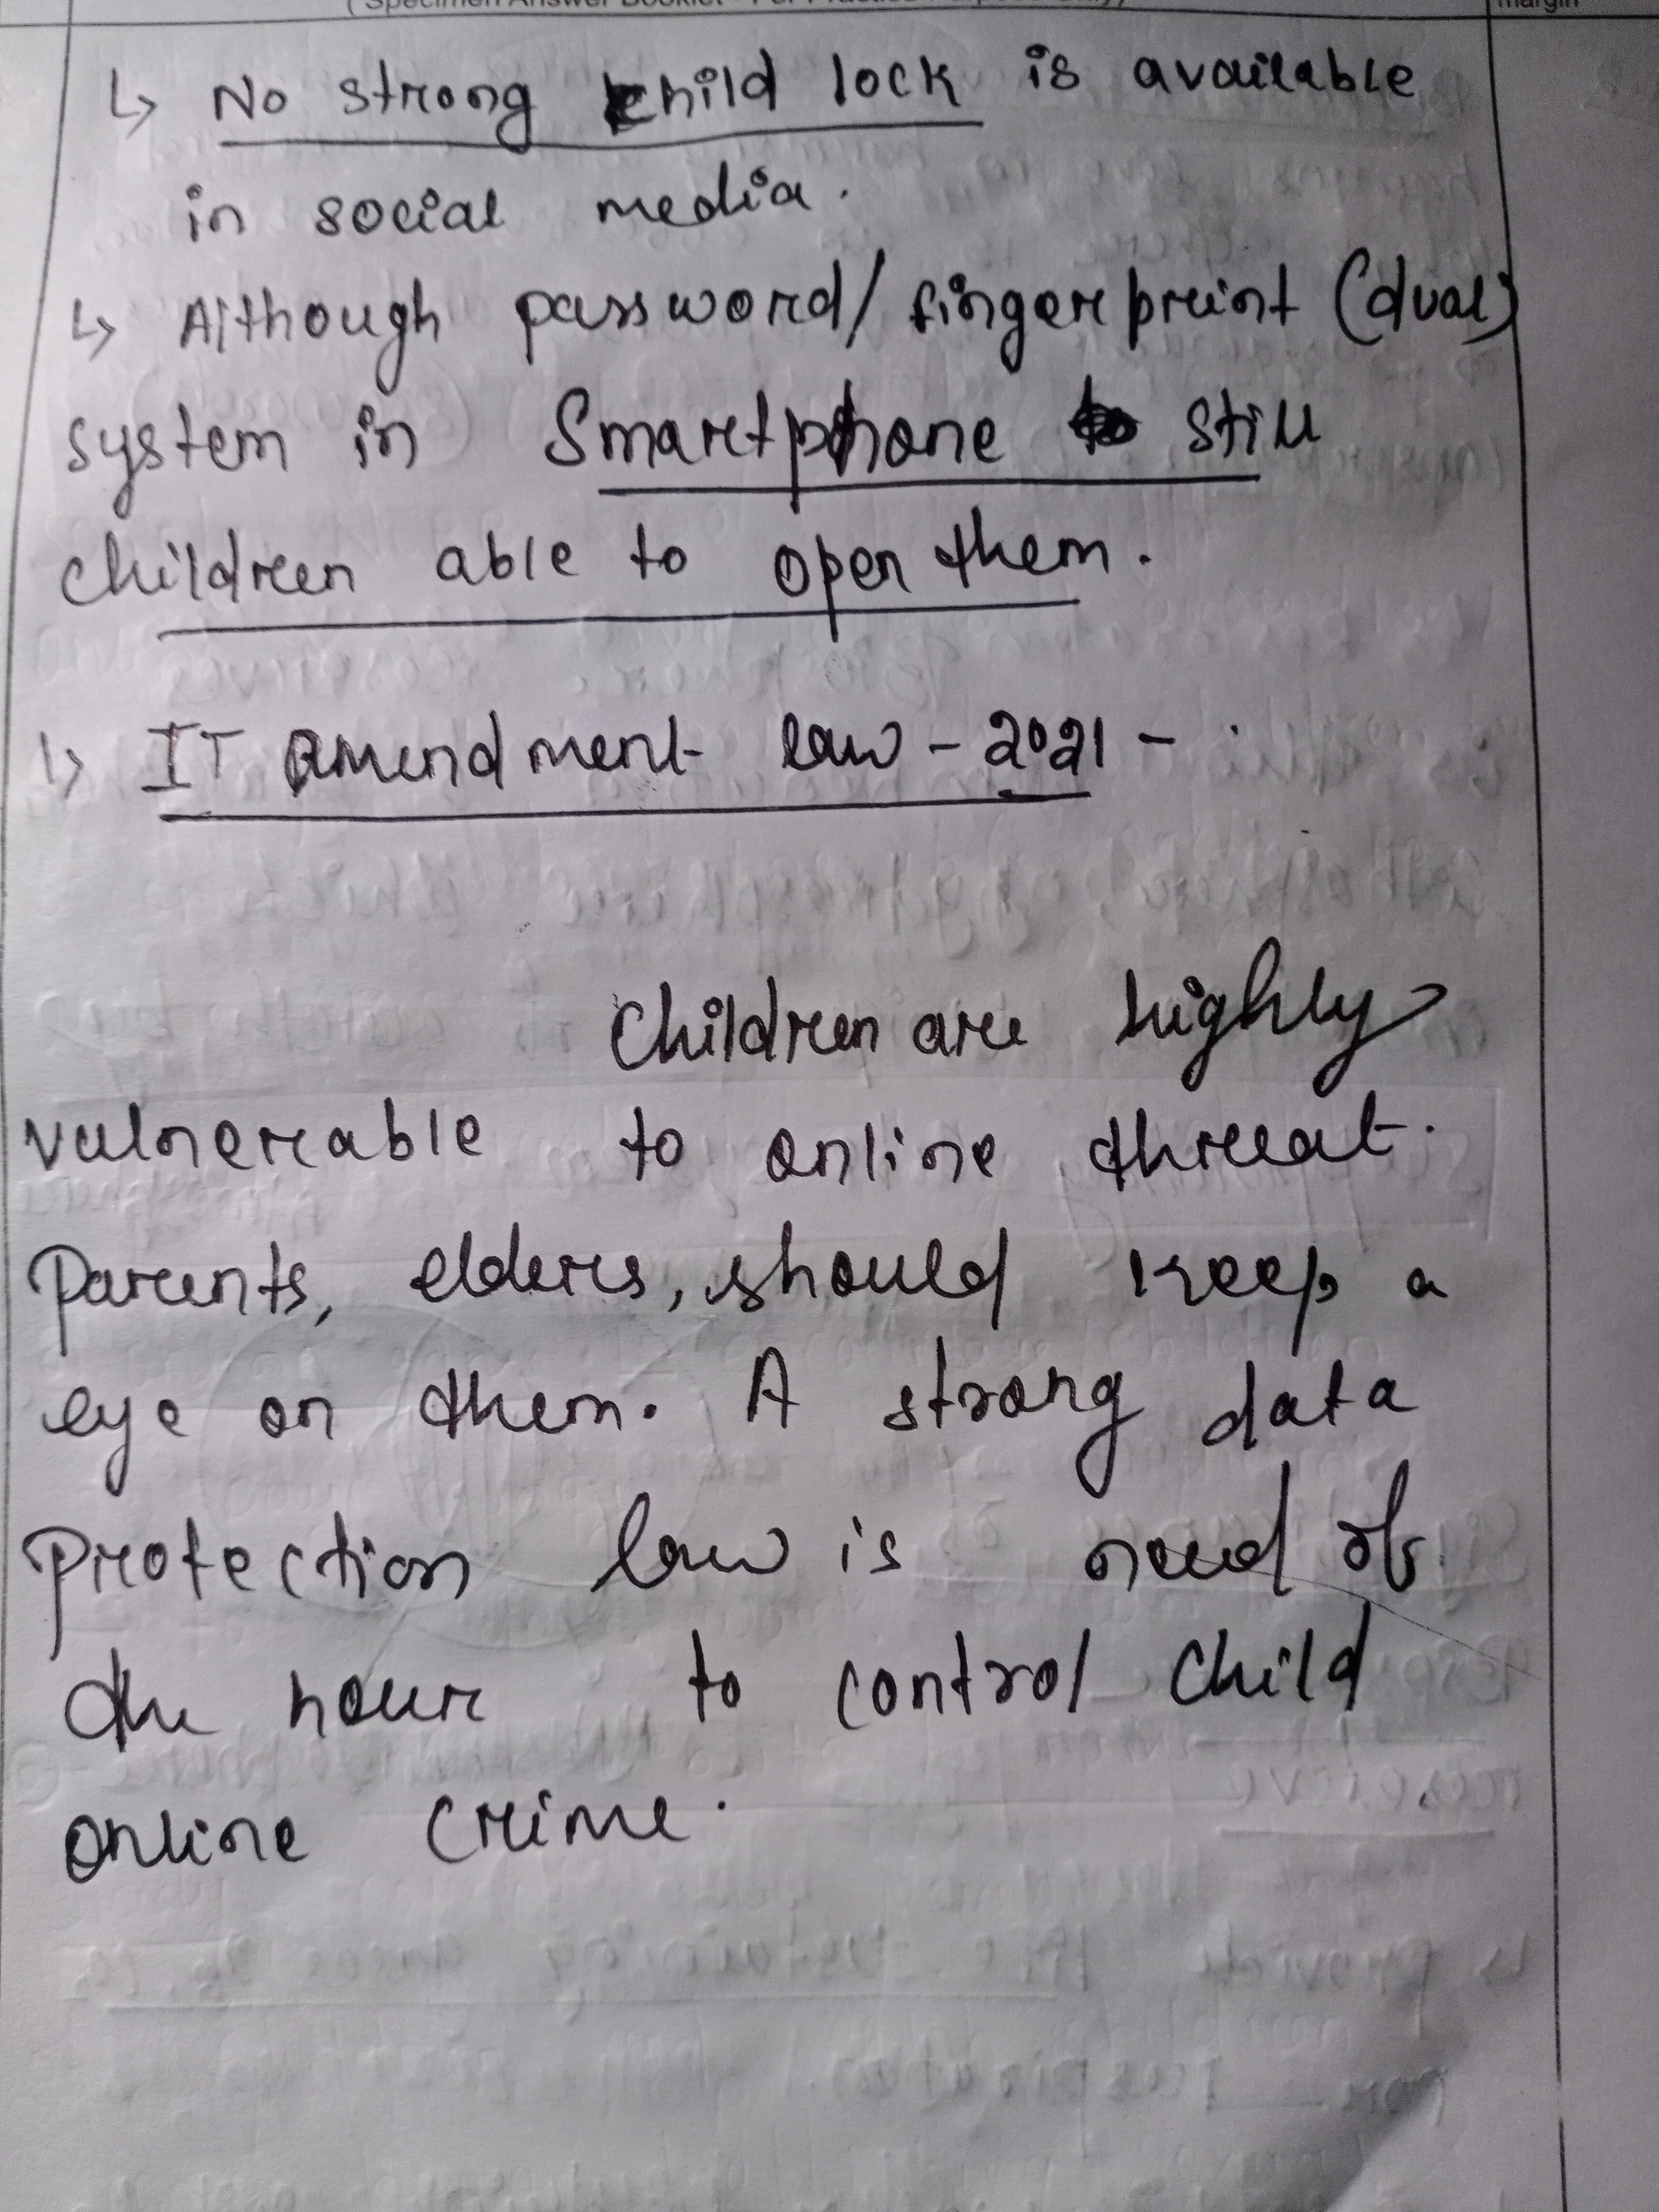 (Specimen Answer Booklet - For Practice Purpose Only)
margin
↳ No strong child lock is available
in social media.
↳ Although password/fingerprint (dual)
system in Smartphone still
children able to open them.
↳ IT amendment law - 2021 -
Children are highly
vulnerable to online threat.
Parents, elders, should keep a
eye on them. A strong data
protection law is need of
the hour to control child
online crime.